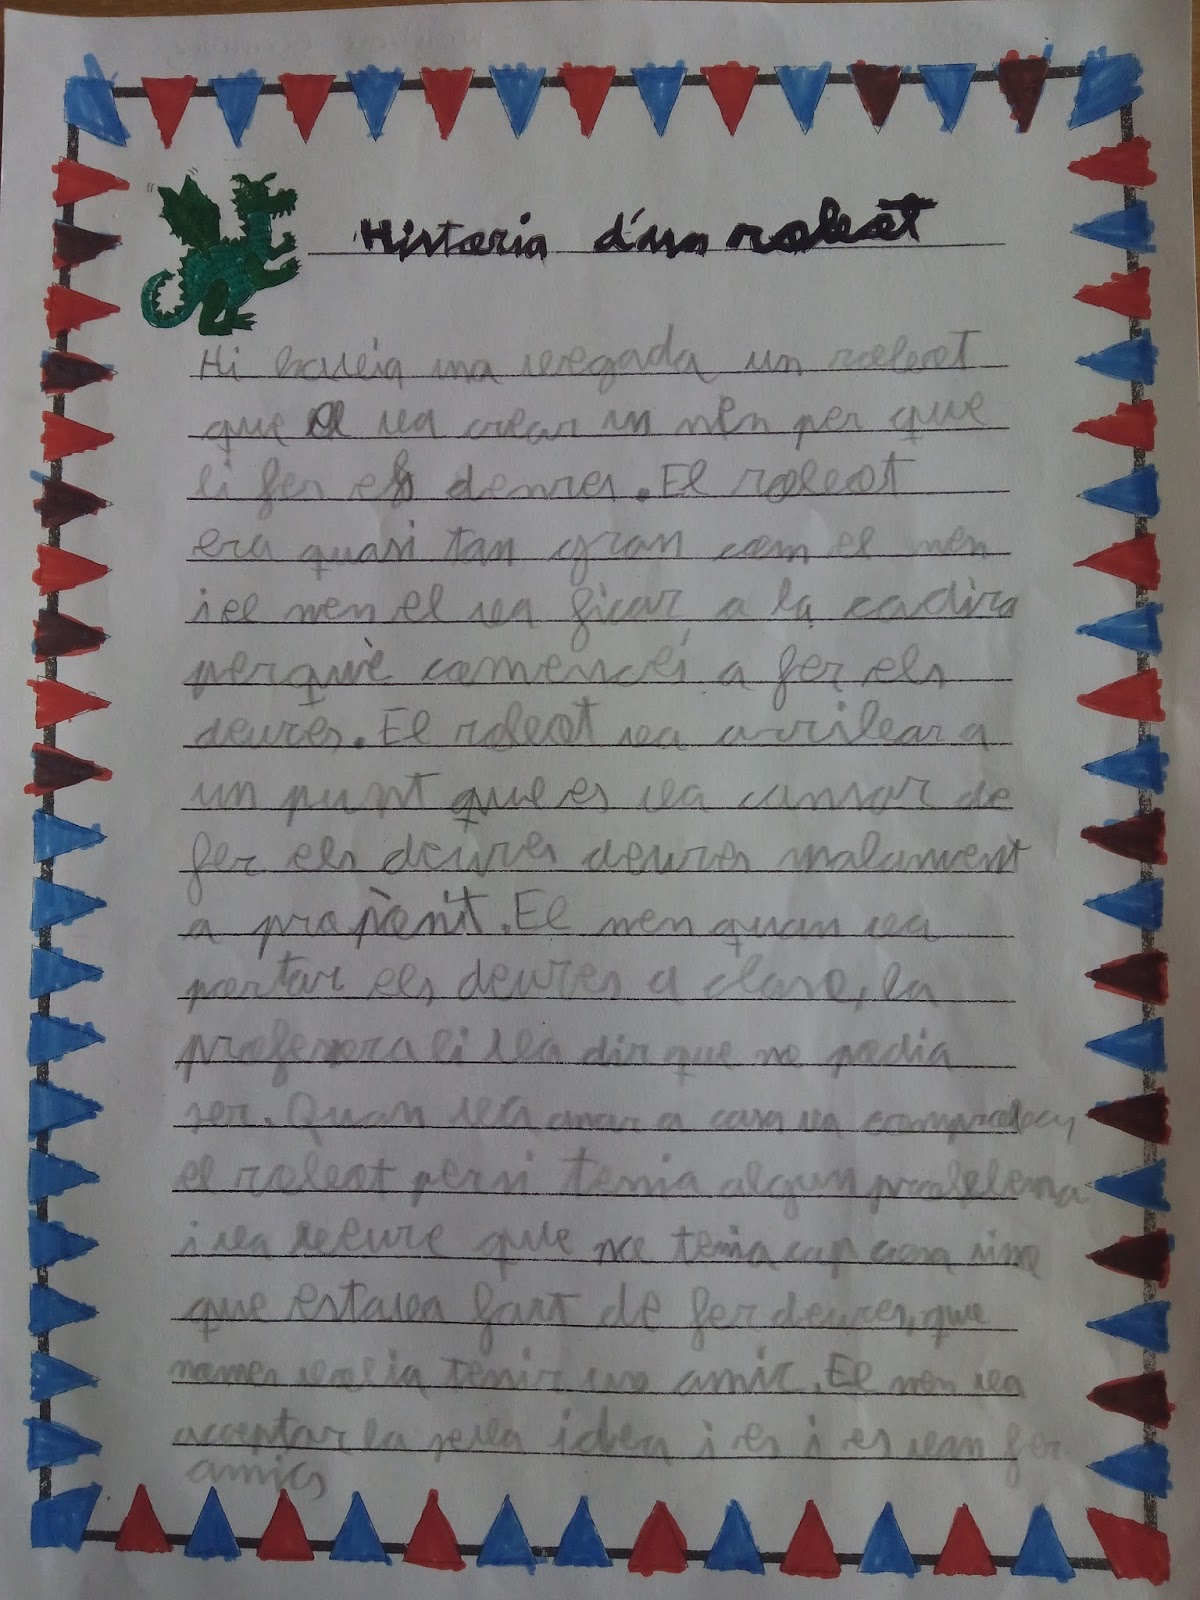 Història d'un robot
Hi havia una vegada un robot
que el va crear un nen per que
li fes els deures. El robot
era quasi tan gran com el nen
i el nen el va ficar a la cadira
perquè comencés a fer els
deures. El robot va arribar a
un punt que es va cansar de
fer els deures deures malament
a propòsit. El nen quan va
portar els deures a classe, la
professora li va dir que no podia
ser. Quan va anar a casa va
el robot per si tenia algun problema
i va veure que no tenia cap sino
que estava fart de fer deures, que
nomes volia tenir un amic. El nen va
acceptar la seva idea i es i es van fer
amics